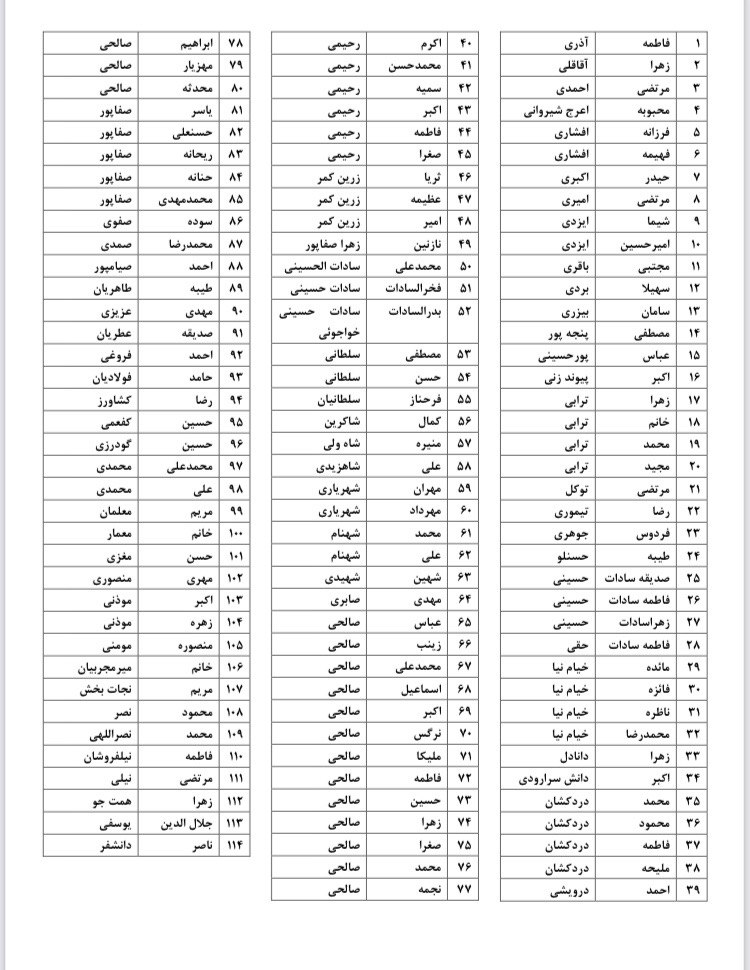 ۱ فاطمه آذری
۲ زهرا آقاقلی
۳ مرتضی احمدی
۴ محبوبه اعرج شیروانی
۵ فرزانه افشاری
۶ فهیمه افشاری
۷ حیدر اکبری
۸ مرتضی امیری
۹ شیما ایزدی
۱۰ امیرحسین ایزدی
۱۱ مجتبی باقری
۱۲ سهیلا بردی
۱۳ سامان بیزری
۱۴ مصطفی پنجه پور
۱۵ عباس پورحسینی
۱۶ اکبر پیوند زنی
۱۷ زهرا ترابی
۱۸ خانم ترابی
۱۹ محمد ترابی
۲۰ مجید ترابی
۲۱ مرتضی توکل
۲۲ رضا تیموری
۲۳ فردوس جوهری
۲۴ طیبه حسنلو
۲۵ صدیقه سادات حسینی
۲۶ فاطمه سادات حسینی
۲۷ زهراسادات حسینی
۲۸ فاطمه سادات حقی
۲۹ مائده خیام نیا
۳۰ فائزه خیام نیا
۳۱ ناظره خیام نیا
۳۲ محمدرضا خیام نیا
۳۳ زهرا دانادل
۳۴ اکبر دانش سرارودی
۳۵ محمد دردکشان
۳۶ محمود دردکشان
۳۷ فاطمه دردکشان
۳۸ ملیحه دردکشان
۳۹ احمد درویشی
۴۰ اکرم رحیمی
۴۱ محمدحسن رحیمی
۴۲ سمیه رحیمی
۴۳ اکبر رحیمی
۴۴ فاطمه رحیمی
۴۵ صغرا رحیمی
۴۶ ثریا زرین کمر
۴۷ عظیمه زرین کمر
۴۸ امیر زرین کمر
۴۹ نازنین زهرا صفاپور
۵۰ محمدعلی سادات الحسینی
۵۱ فخرالسادات سادات حسینی
۵۲ بدرالسادات سادات حسینی
خواجوئی
۵۳ مصطفی سلطانی
۵۴ حسن سلطانی
۵۵ فرحناز سلطانیان
۵۶ کمال شاکرین
۵۷ منیره شاه ولی
۵۸ علی شاهزیدی
۵۹ مهران شهریاری
۶۰ مهرداد شهریاری
۶۱ محمد شهنام
۶۲ علی شهنام
۶۳ شهین شهیدی
۶۴ مهدی صابری
۶۵ عباس صالحی
۶۶ زینب صالحی
۶۷ محمدعلی صالحی
۶۸ اسماعیل صالحی
۶۹ اکبر صالحی
۷۰ نرگس صالحی
۷۱ ملیکا صالحی
۷۲ فاطمه صالحی
۷۳ حسین صالحی
۷۴ زهرا صالحی
۷۵ صغرا صالحی
۷۶ محمد صالحی
۷۷ نجمه صالحی
۷۸ ابراهیم صالحی
۷۹ مهزیار صالحی
۸۰ محدثه صالحی
۸۱ یاسر صفاپور
۸۲ حسنعلی صفاپور
۸۳ ریحانه صفاپور
۸۴ حنانه صفاپور
۸۵ محمدمهدی صفاپور
۸۶ سوده صفوی
۸۷ محمدرضا صمدی
۸۸ احمد صیامپور
۸۹ طیبه طاهریان
۹۰ مهدی عزیزی
۹۱ صدیقه عطریان
۹۲ احمد فروغی
۹۳ حامد فولادیان
۹۴ رضا کشاورز
۹۵ حسین کفعمی
۹۶ حسین گودرزی
۹۷ محمدعلی محمدی
۹۸ علی محمدی
۹۹ مریم معلمان
۱۰۰ خانم معمار
۱۰۱ حسن مغزی
۱۰۲ مهری منصوری
۱۰۳ اکبر موذنی
۱۰۴ زهره موذنی
۱۰۵ منصوره مومنی
۱۰۶ خانم میرمجربیان
۱۰۷ مریم نجات بخش
۱۰۸ محمود نصر
۱۰۹ محمد نصراللهی
۱۱۰ فاطمه نیلفروشان
۱۱۱ مرتضی نیلی
۱۱۲ زهرا همت جو
۱۱۳ جلال الدین یوسفی
۱۱۴ ناصر دانشفر